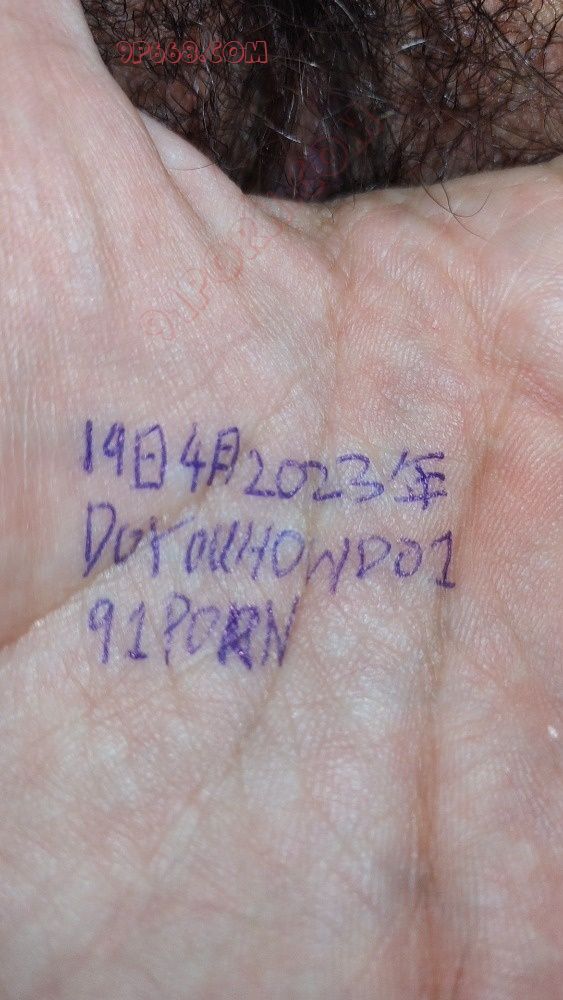 9P668.COM
91PORN.COM
19日4月2023年
DOYOUHOWDO1
91PORN